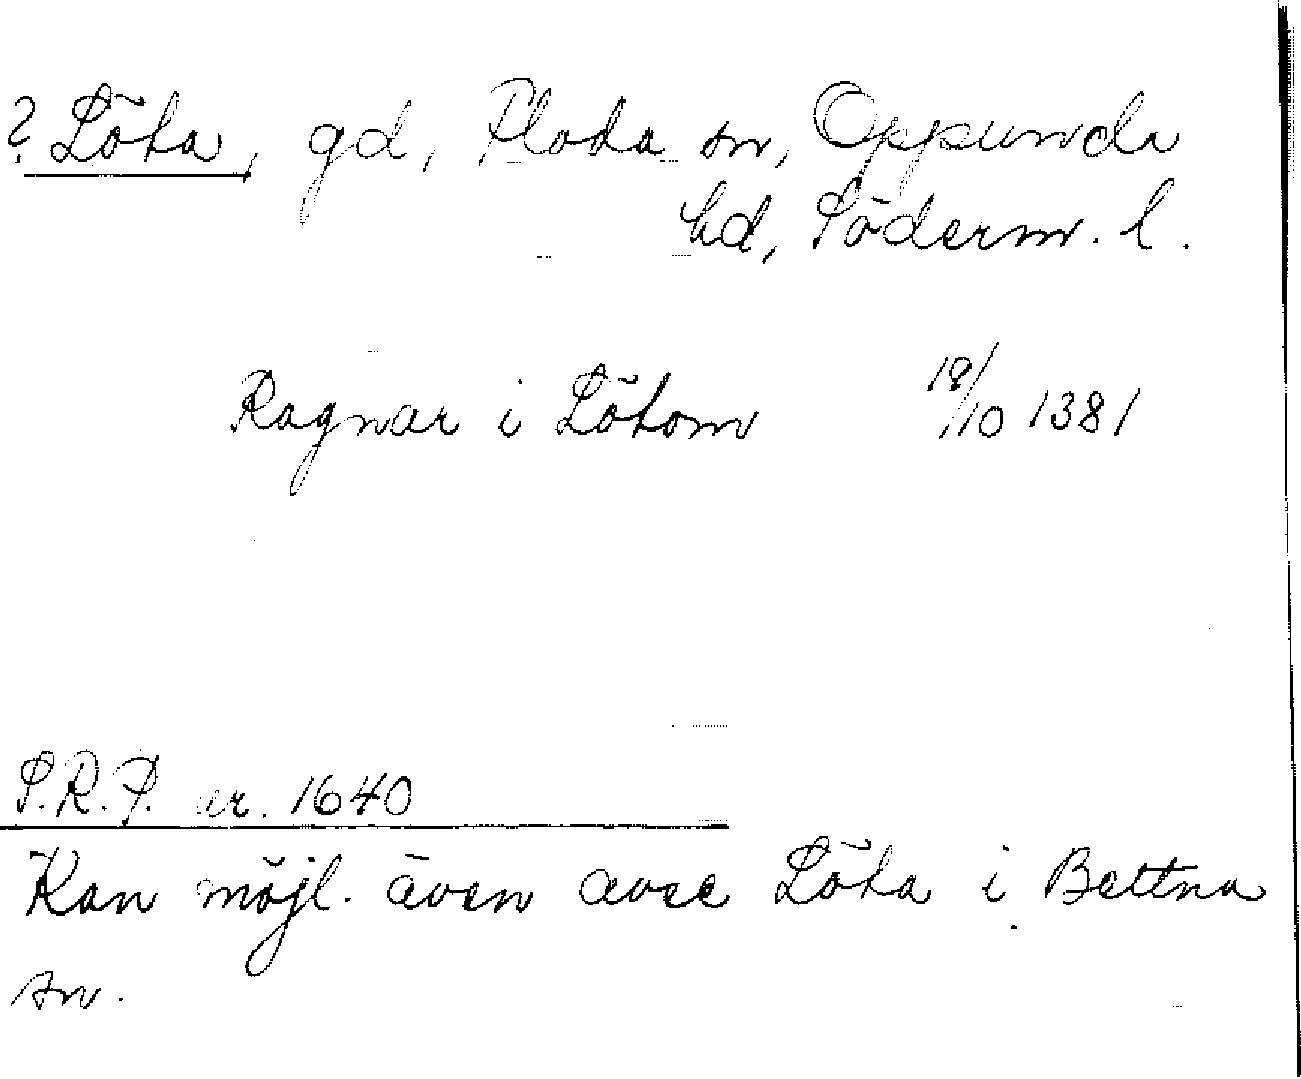 ? Löta, gd, Floda sn, Oppunda
hd, Söderm. l.
Ragnar i Lötom 18/10 1381
S.R.P. nr. 1640
Kan möjl. även avse Löta i Bettna
sn.